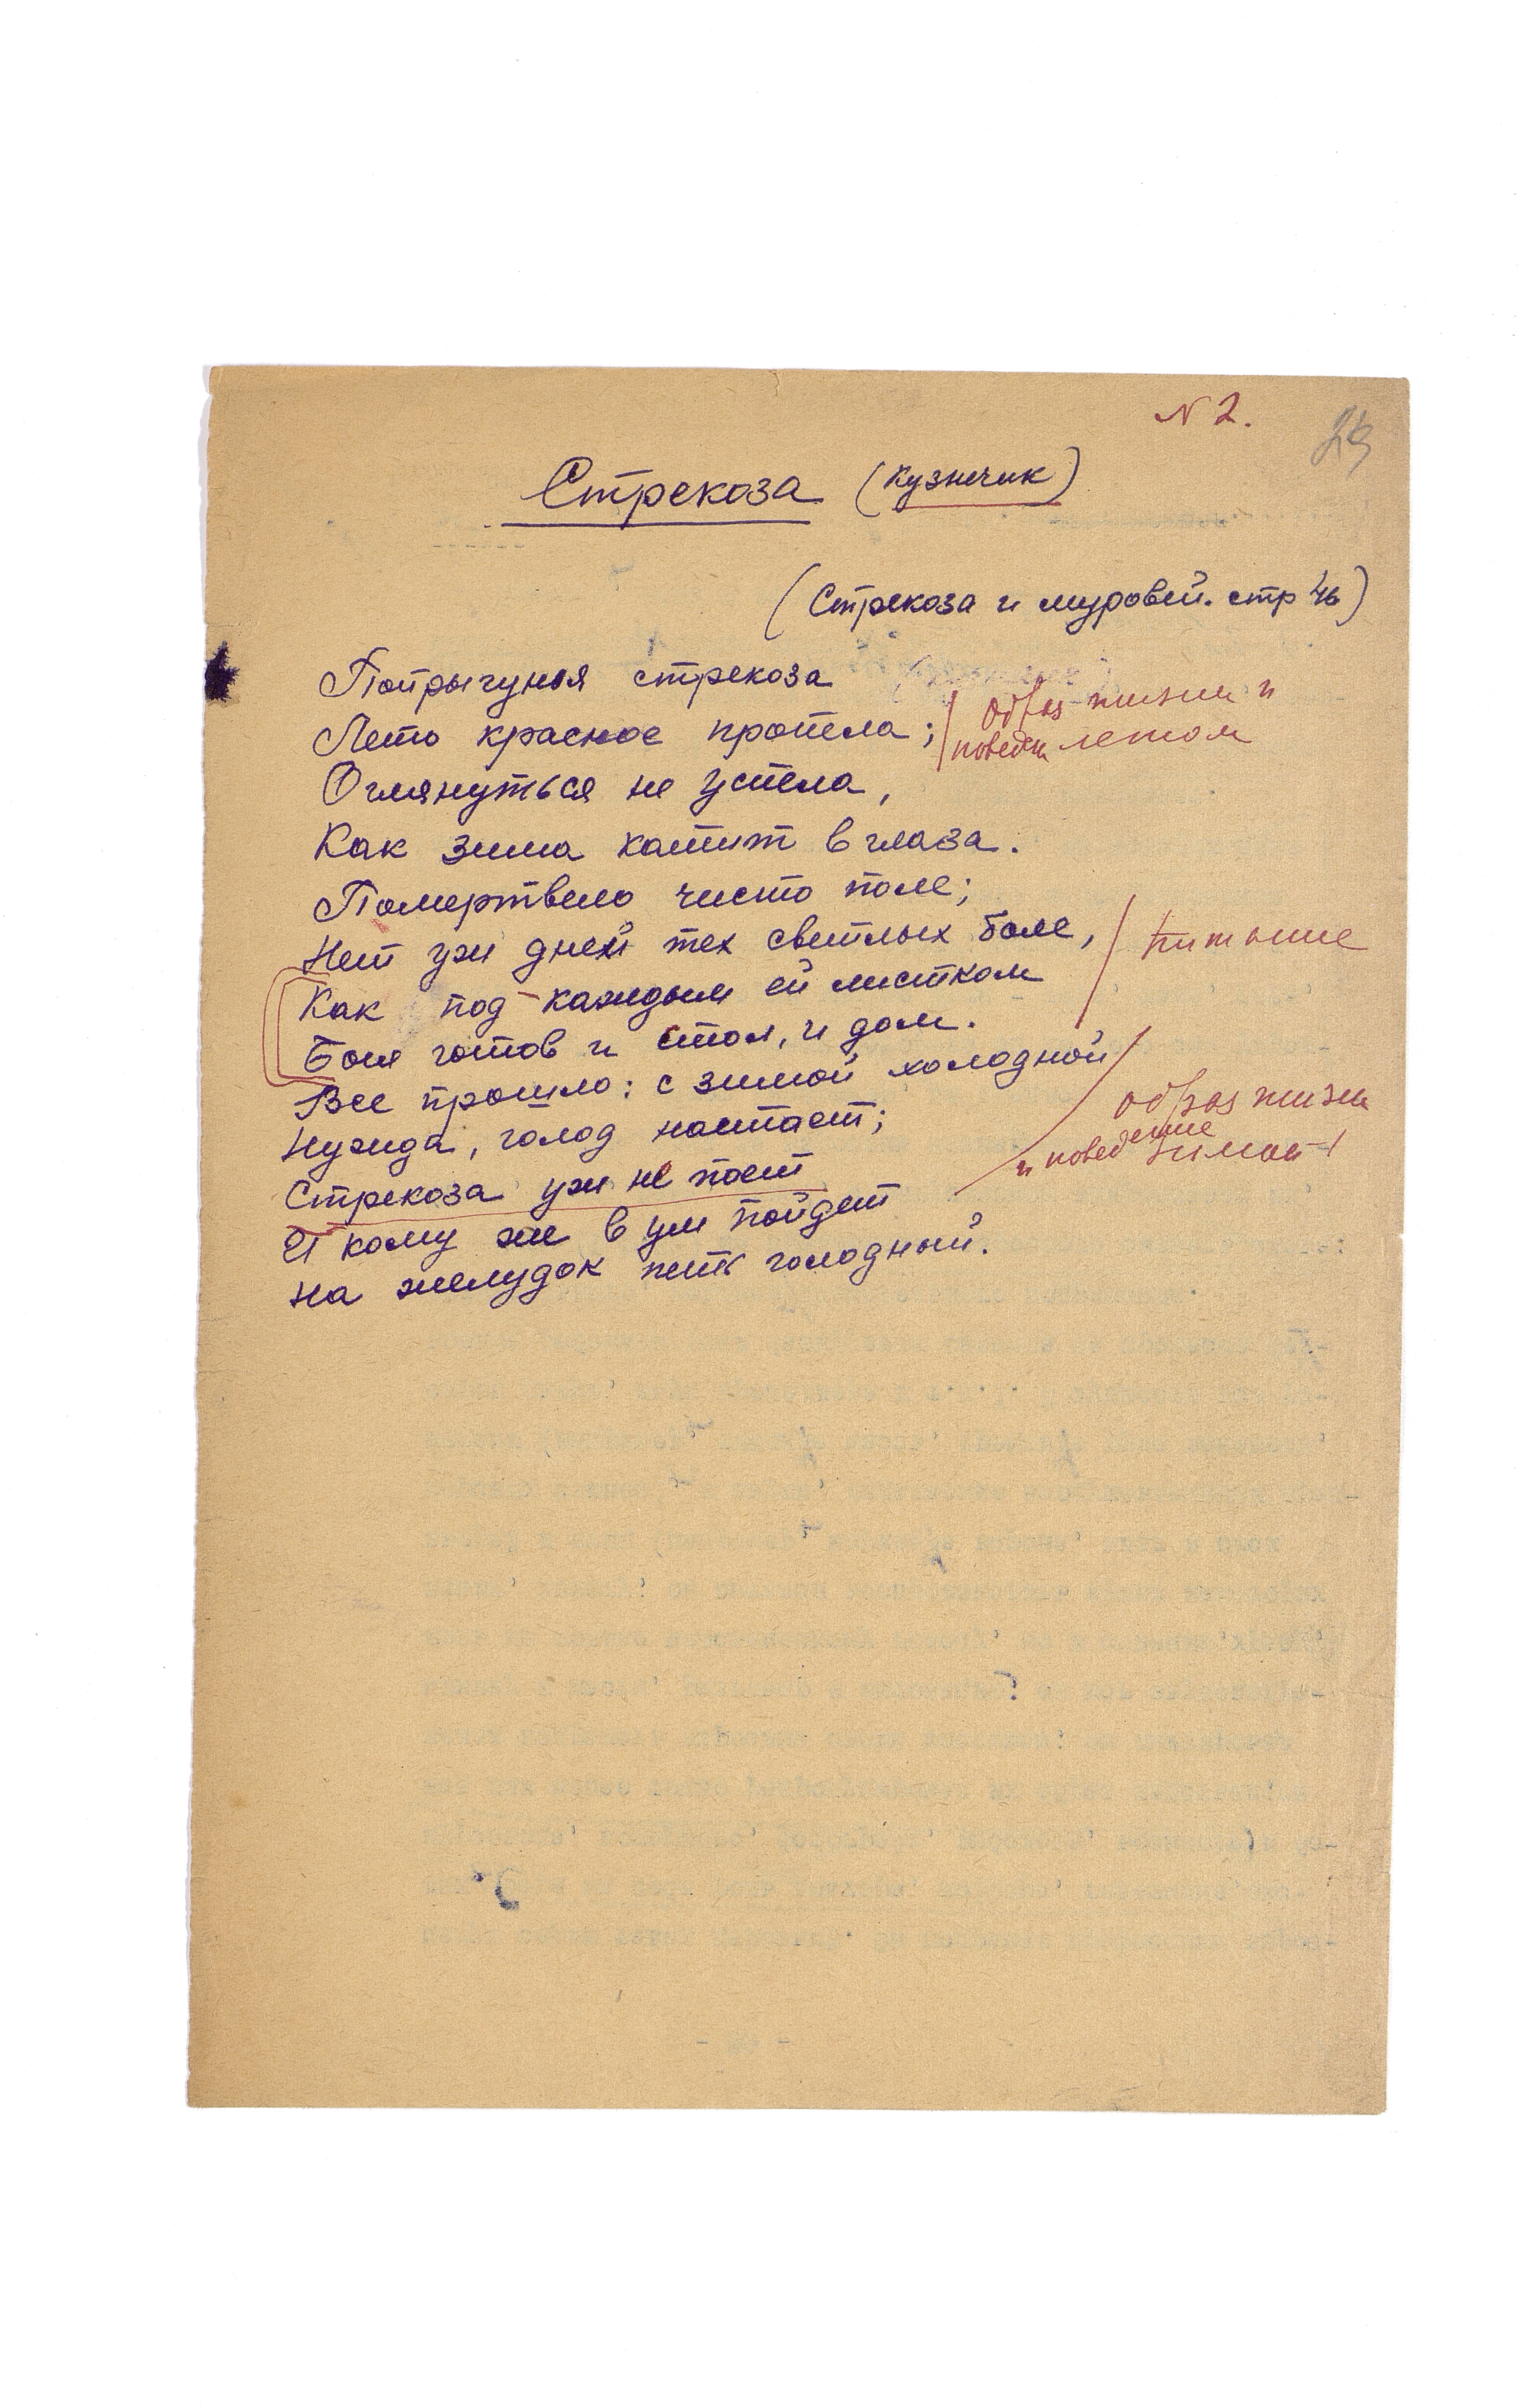 N 2.
Стрекоза (кузнечик)
(Стрекоза и муровей. стр 46)
Попрыгунья стрекоза
Лето красное пропела;
образ жизни и
поведен летом
Оглянуться не успела,
Как зима катит в глаза.
Помертвело чисто поле;
Нет уж дней тех светлых боле,
питание
Как под каждым ей листком
Был готов и стол, и дом.
Все прошло: с зимой холодной
образ жизни
и поведение зимой
Нужда, голод настает;
Стрекоза уж не поет
И кому же в ум пойдет
На желудок петь голодный.